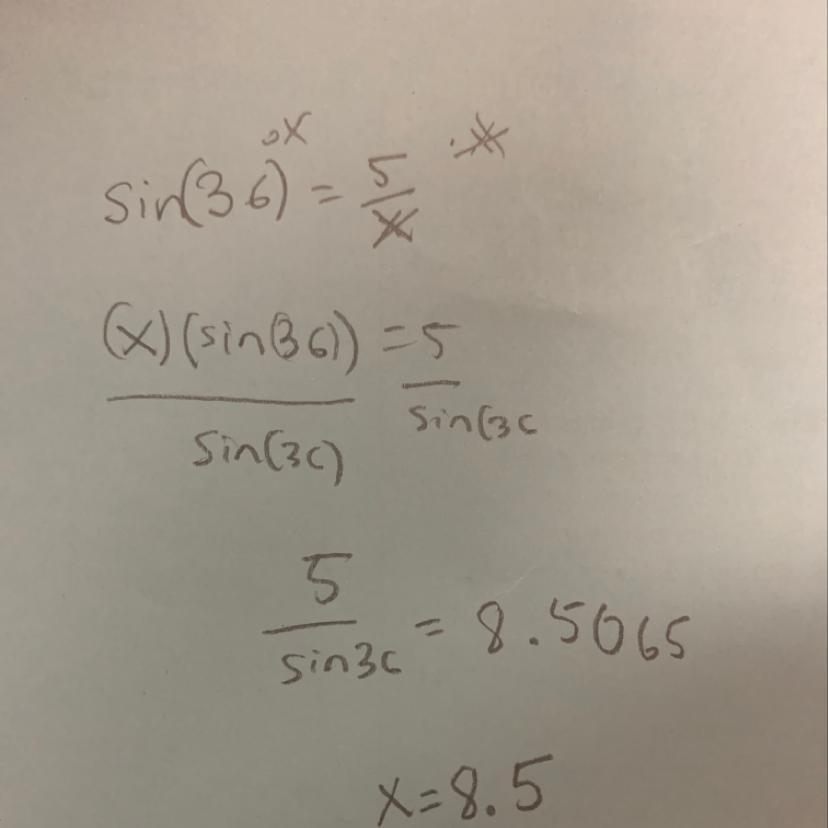 ·x ·x
sin(36) = 5/x
(x)(sin(36)) = 5
sin(36) sin(36
5/sin36 = 8.5065
x=8.5